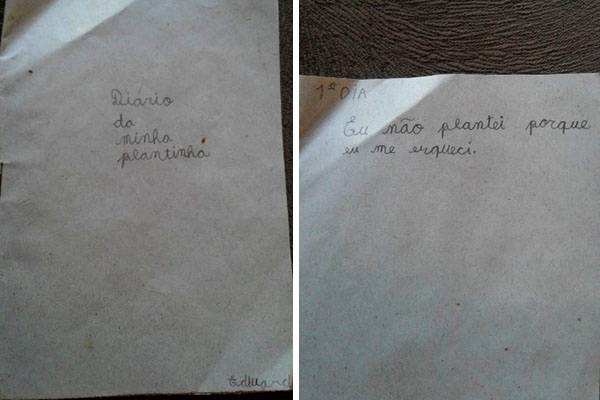 Diário
da
minha
plantinha
Eduard
1º DIA
Eu não plantei porque
eu me esqueci.